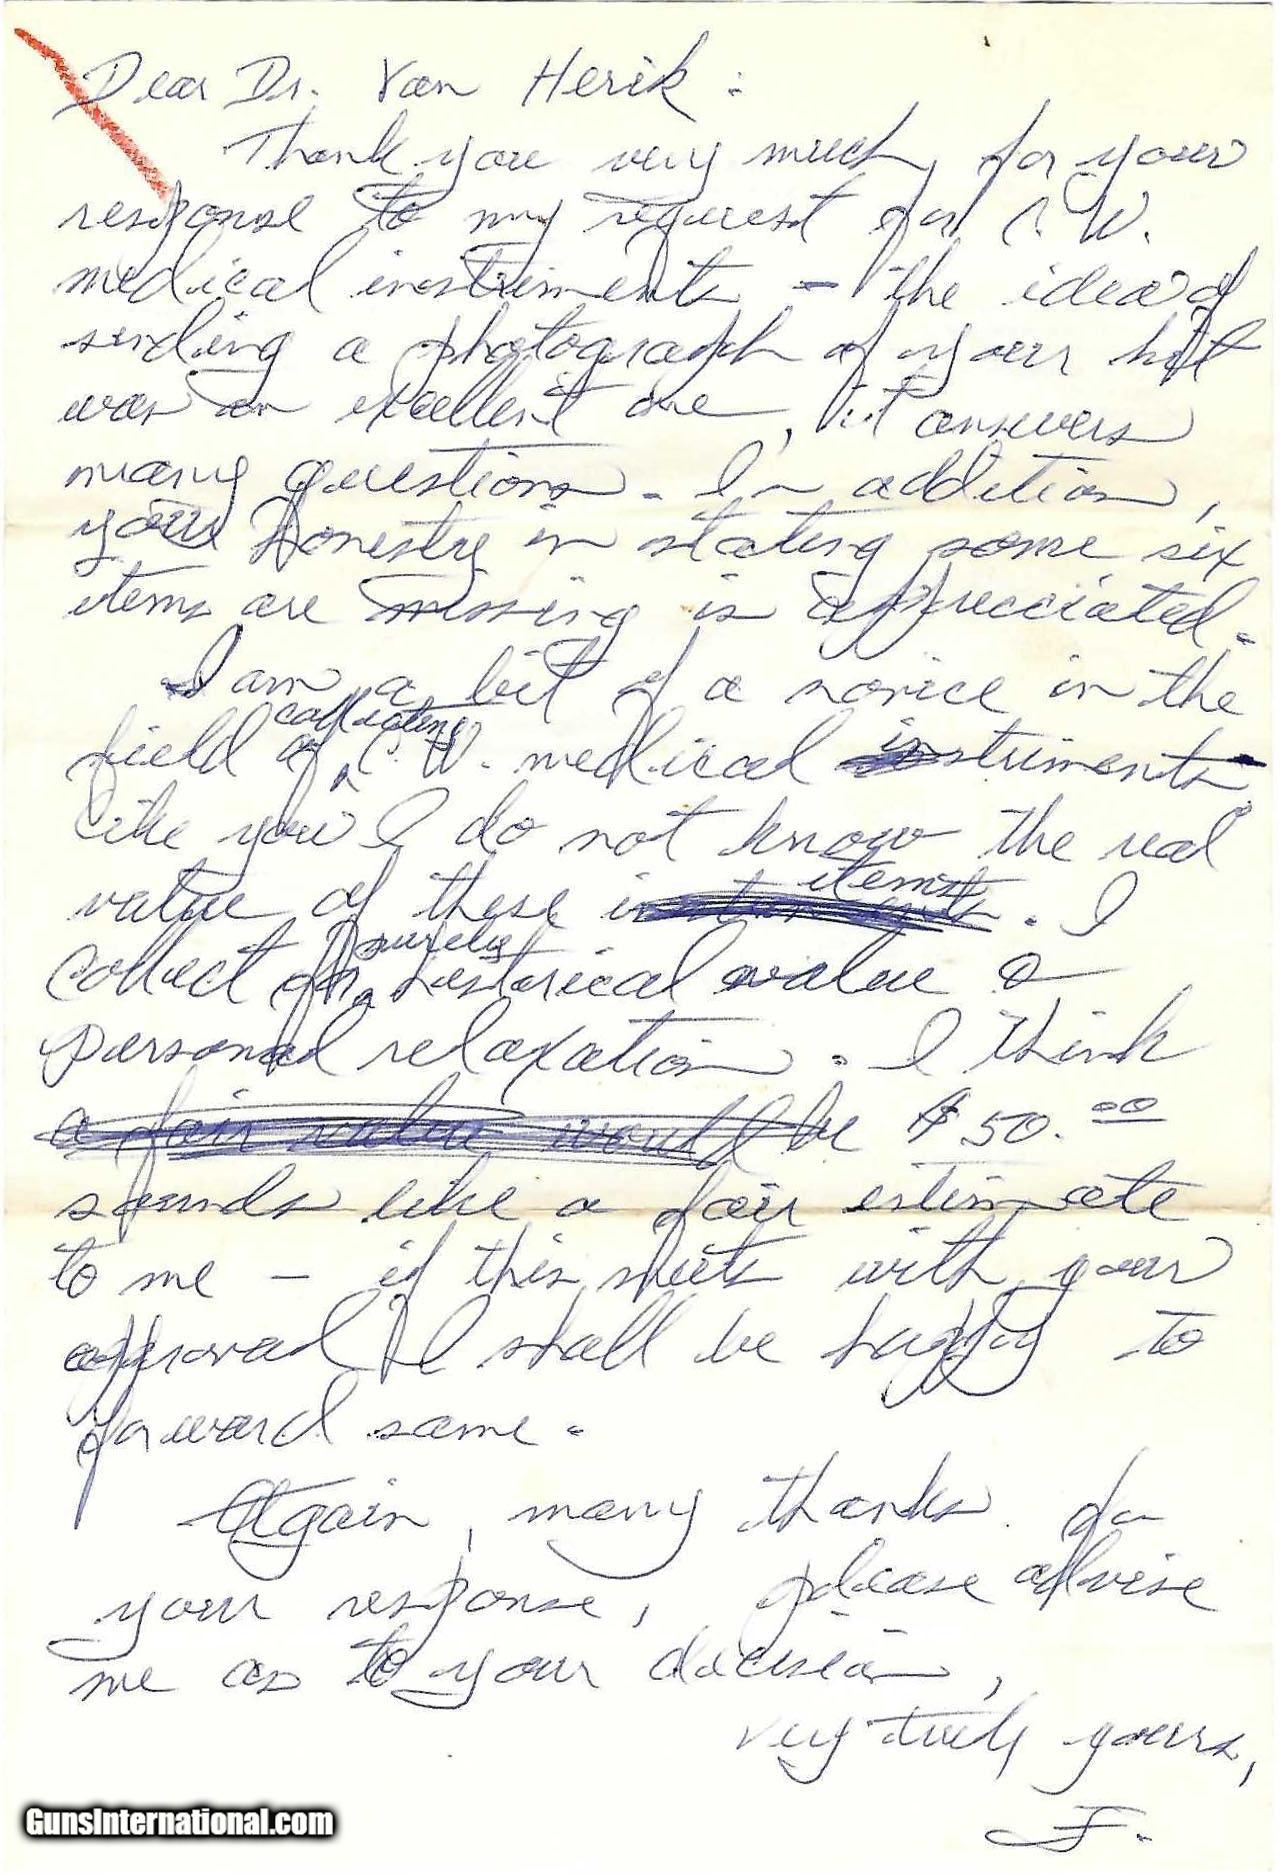 Dear Dr. Van Herik:
Thank you very much, for your
response to my request for C. W.
medical instriments - the idea of
sending a photograph of your kit
was an excellent one, it answers
many questions. In addition,
your honesty in stating some six
items are missing is appreciated.
I am a bit of a novice in the
field of collecting C. W. medical instriments.
Like you I do not know the real
value of these items. I
collect for purely historical value &
personal relaxation. I think
a fair value would be $50.00
sounds like a fair estimate
to me - if this meets with your
approval I shall be happy to
forward same.
Again, many thanks for
your response, please advise
me as to your decision,
very truly yours,
F.
GunsInternational.com